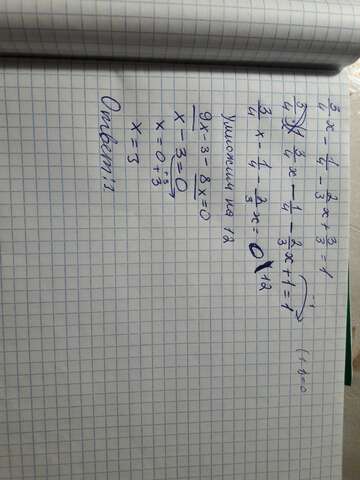 3/4 x - 1/4 - 2/3 x + 3/3 = 1
3/4 x - 1/4 - 2/3 x + 1 = 1
-1
(1-1=0
3/4 x - 1/4 - 2/3 x = 0 | ·12
Умножим на 12
9x - 3 - 8x = 0
x - 3 = 0
+3
x = 0 + 3
x = 3
Ответ: 3